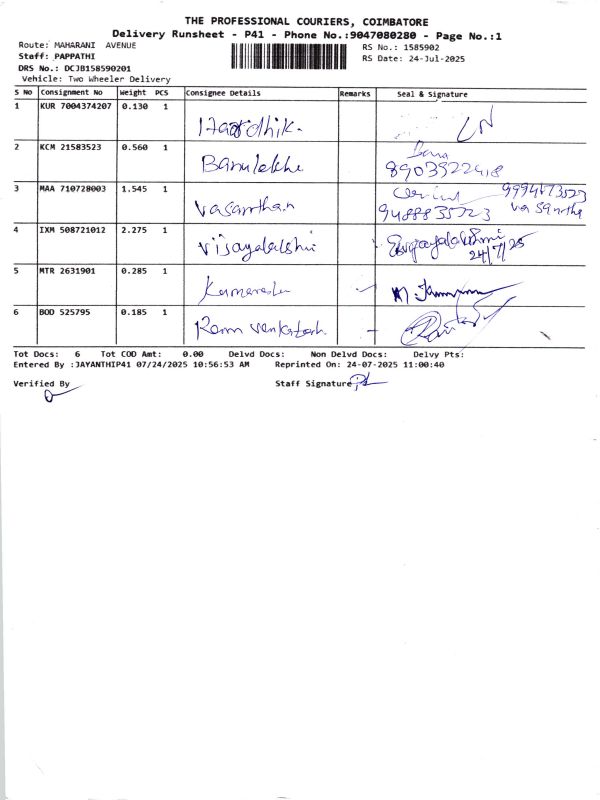 THE PROFESSIONAL COURIERS, COIMBATORE
Delivery Runsheet - P41 - Phone No.:9047080280 - Page No.:1
Route: MAHARANI AVENUE
RS No.: 1585902
Staff: PAPPATHI
RS Date: 24-Jul-2025
DRS No.: DCJB158590201
Vehicle: Two Wheeler Delivery
S No Consignment No Weight PCS Consignee Details Remarks Seal & Signature
1 KUR 7004374207 0.130 1 Haardhik.
2 KCM 21583523 0.560 1 Banulekha Banu
8903922418
3 MAA 710728003 1.545 1 Vasanthan 9994673523
9488835723 Vasantha
4 IXM 508721012 2.275 1 Vijayalakshmi Vijayalakshmi
24/7/25
5 MTR 2631901 0.285 1 Kumaresh
6 BOD 525795 0.185 1 Ram Venkatesh
Tot Docs: 6 Tot COD Amt: 0.00 Delvd Docs: Non Delvd Docs: Delvy Pts:
Entered By :JAYANTHIP41 07/24/2025 10:56:53 AM Reprinted On: 24-07-2025 11:00:40
Verified By Staff Signature